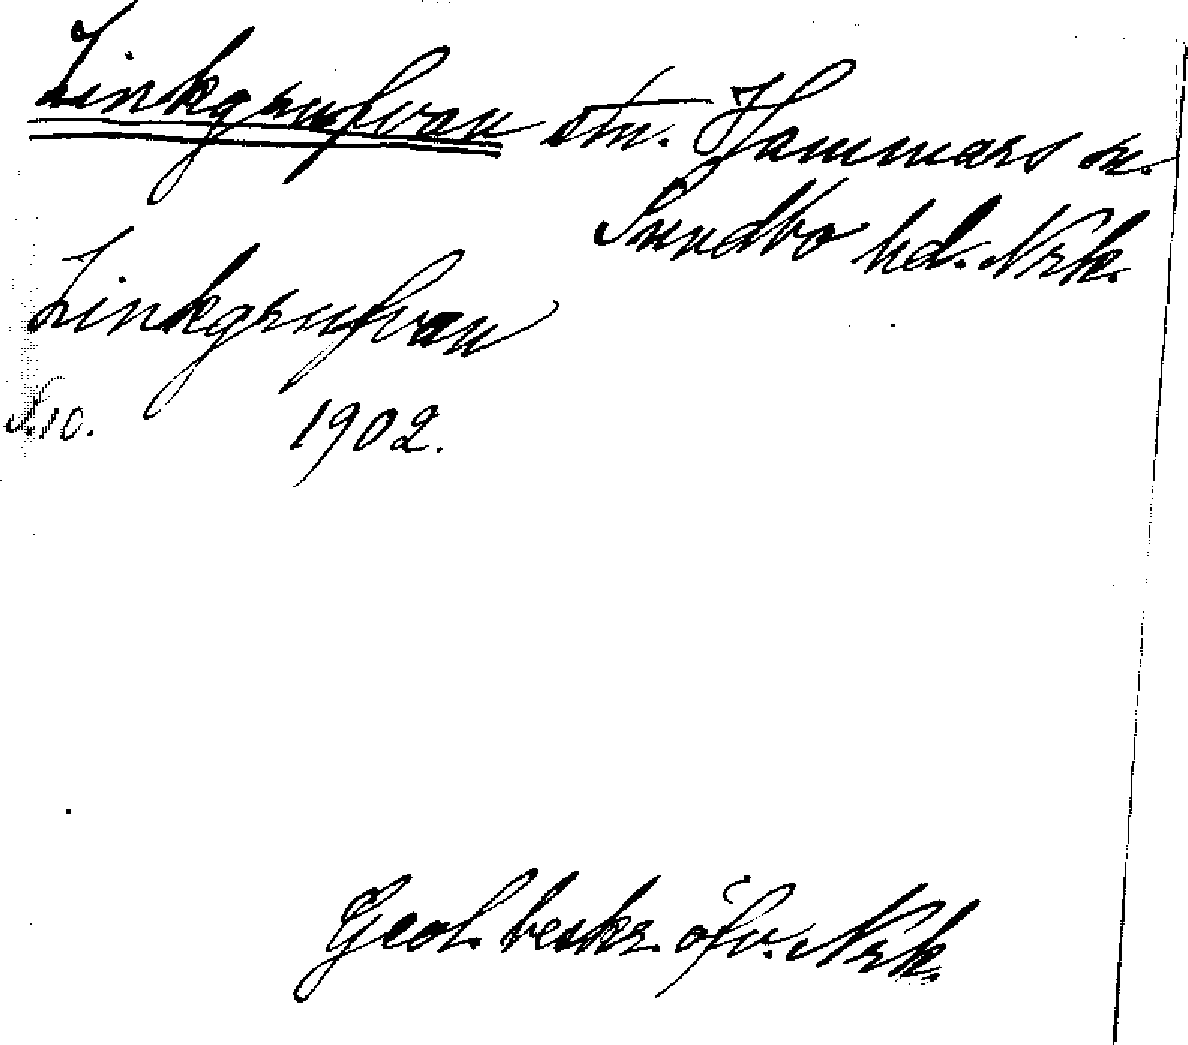 Zinkgrufvan stn. Hammars sn.
Sundbo hd. Nrk.
Zinkgrufvan
S. 10. 1902.
Geol. beskr. öfv. Nrk.